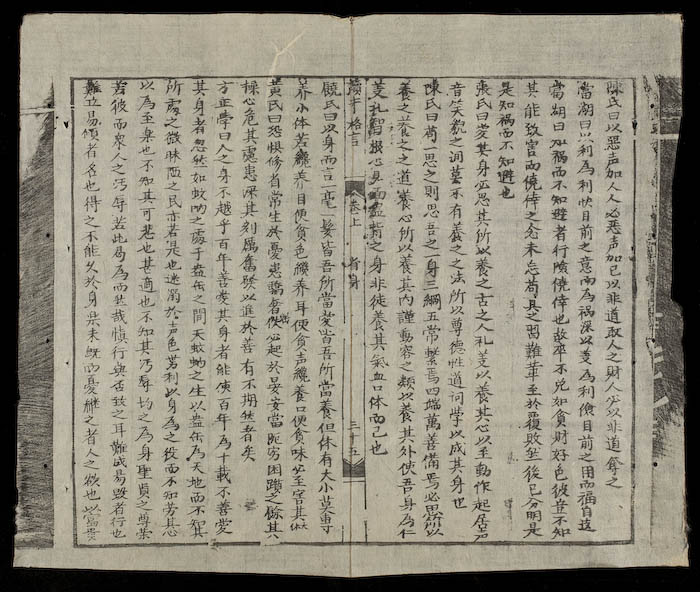 陳氏曰以惡声加人人必惡声加己以非道取人之財人必以非道奪之
當湖曰以利為利快目前之意而為禍深以義為利儉目前之用而福自遠
當湖曰知禍而不知避者行險僥倖也故卒不免如貪財好色彼豈不知
其能致害而僥倖之念未忘苟且之習難革至於覆敗然後已分明是
是知禍而不知避也
張氏曰愛其身必思其所以養之古之人礼義以養其心以至動作起居声
音笑貌之間莫不有養之之法所以尊德性道問學以成其身也
陳氏曰苟一思之則思吾之一身三綱五常繫焉四端萬善備焉必思所以
養之養之之道養心所以養其內謹動容之類以養其外使吾身為仁
義礼智根心見面盎背之身非徒養其氣血口体而已也
格言
卷上
省身
三十五
饒氏曰以身而言一毫一髮皆吾所當愛皆吾所當養但体有大小莫專
养小体若纔养目便貪色纔养耳便貪声纔養口便貪味必至害其
黃氏曰恐惧修省常生於憂患驕奢佚必起於晏安當阨穷困躓之餘其
操心危其慮患深其刻厲奮發以進於善有不期然者矣
方正學曰人之身不越乎百年善愛其身者能使百年為十載不善愛
其身者忽然如蚊蚋之處于盎缶之間夫蚊蚋之生以盎缶為天地而不知其
所處之微昧陋之民亦若是也迷溺於声色势利以身為之役而不知劳其心
以為至樂也不知其可悲也甚適也不知其污辱均之為身聖賢之尊荣
若彼而衆人之污辱若此曷為而然哉慎行與否致之耳難成易毀者行也
難立易傾者名也得之不能久於身樂未既而憂繼之者人之欲也以富貴